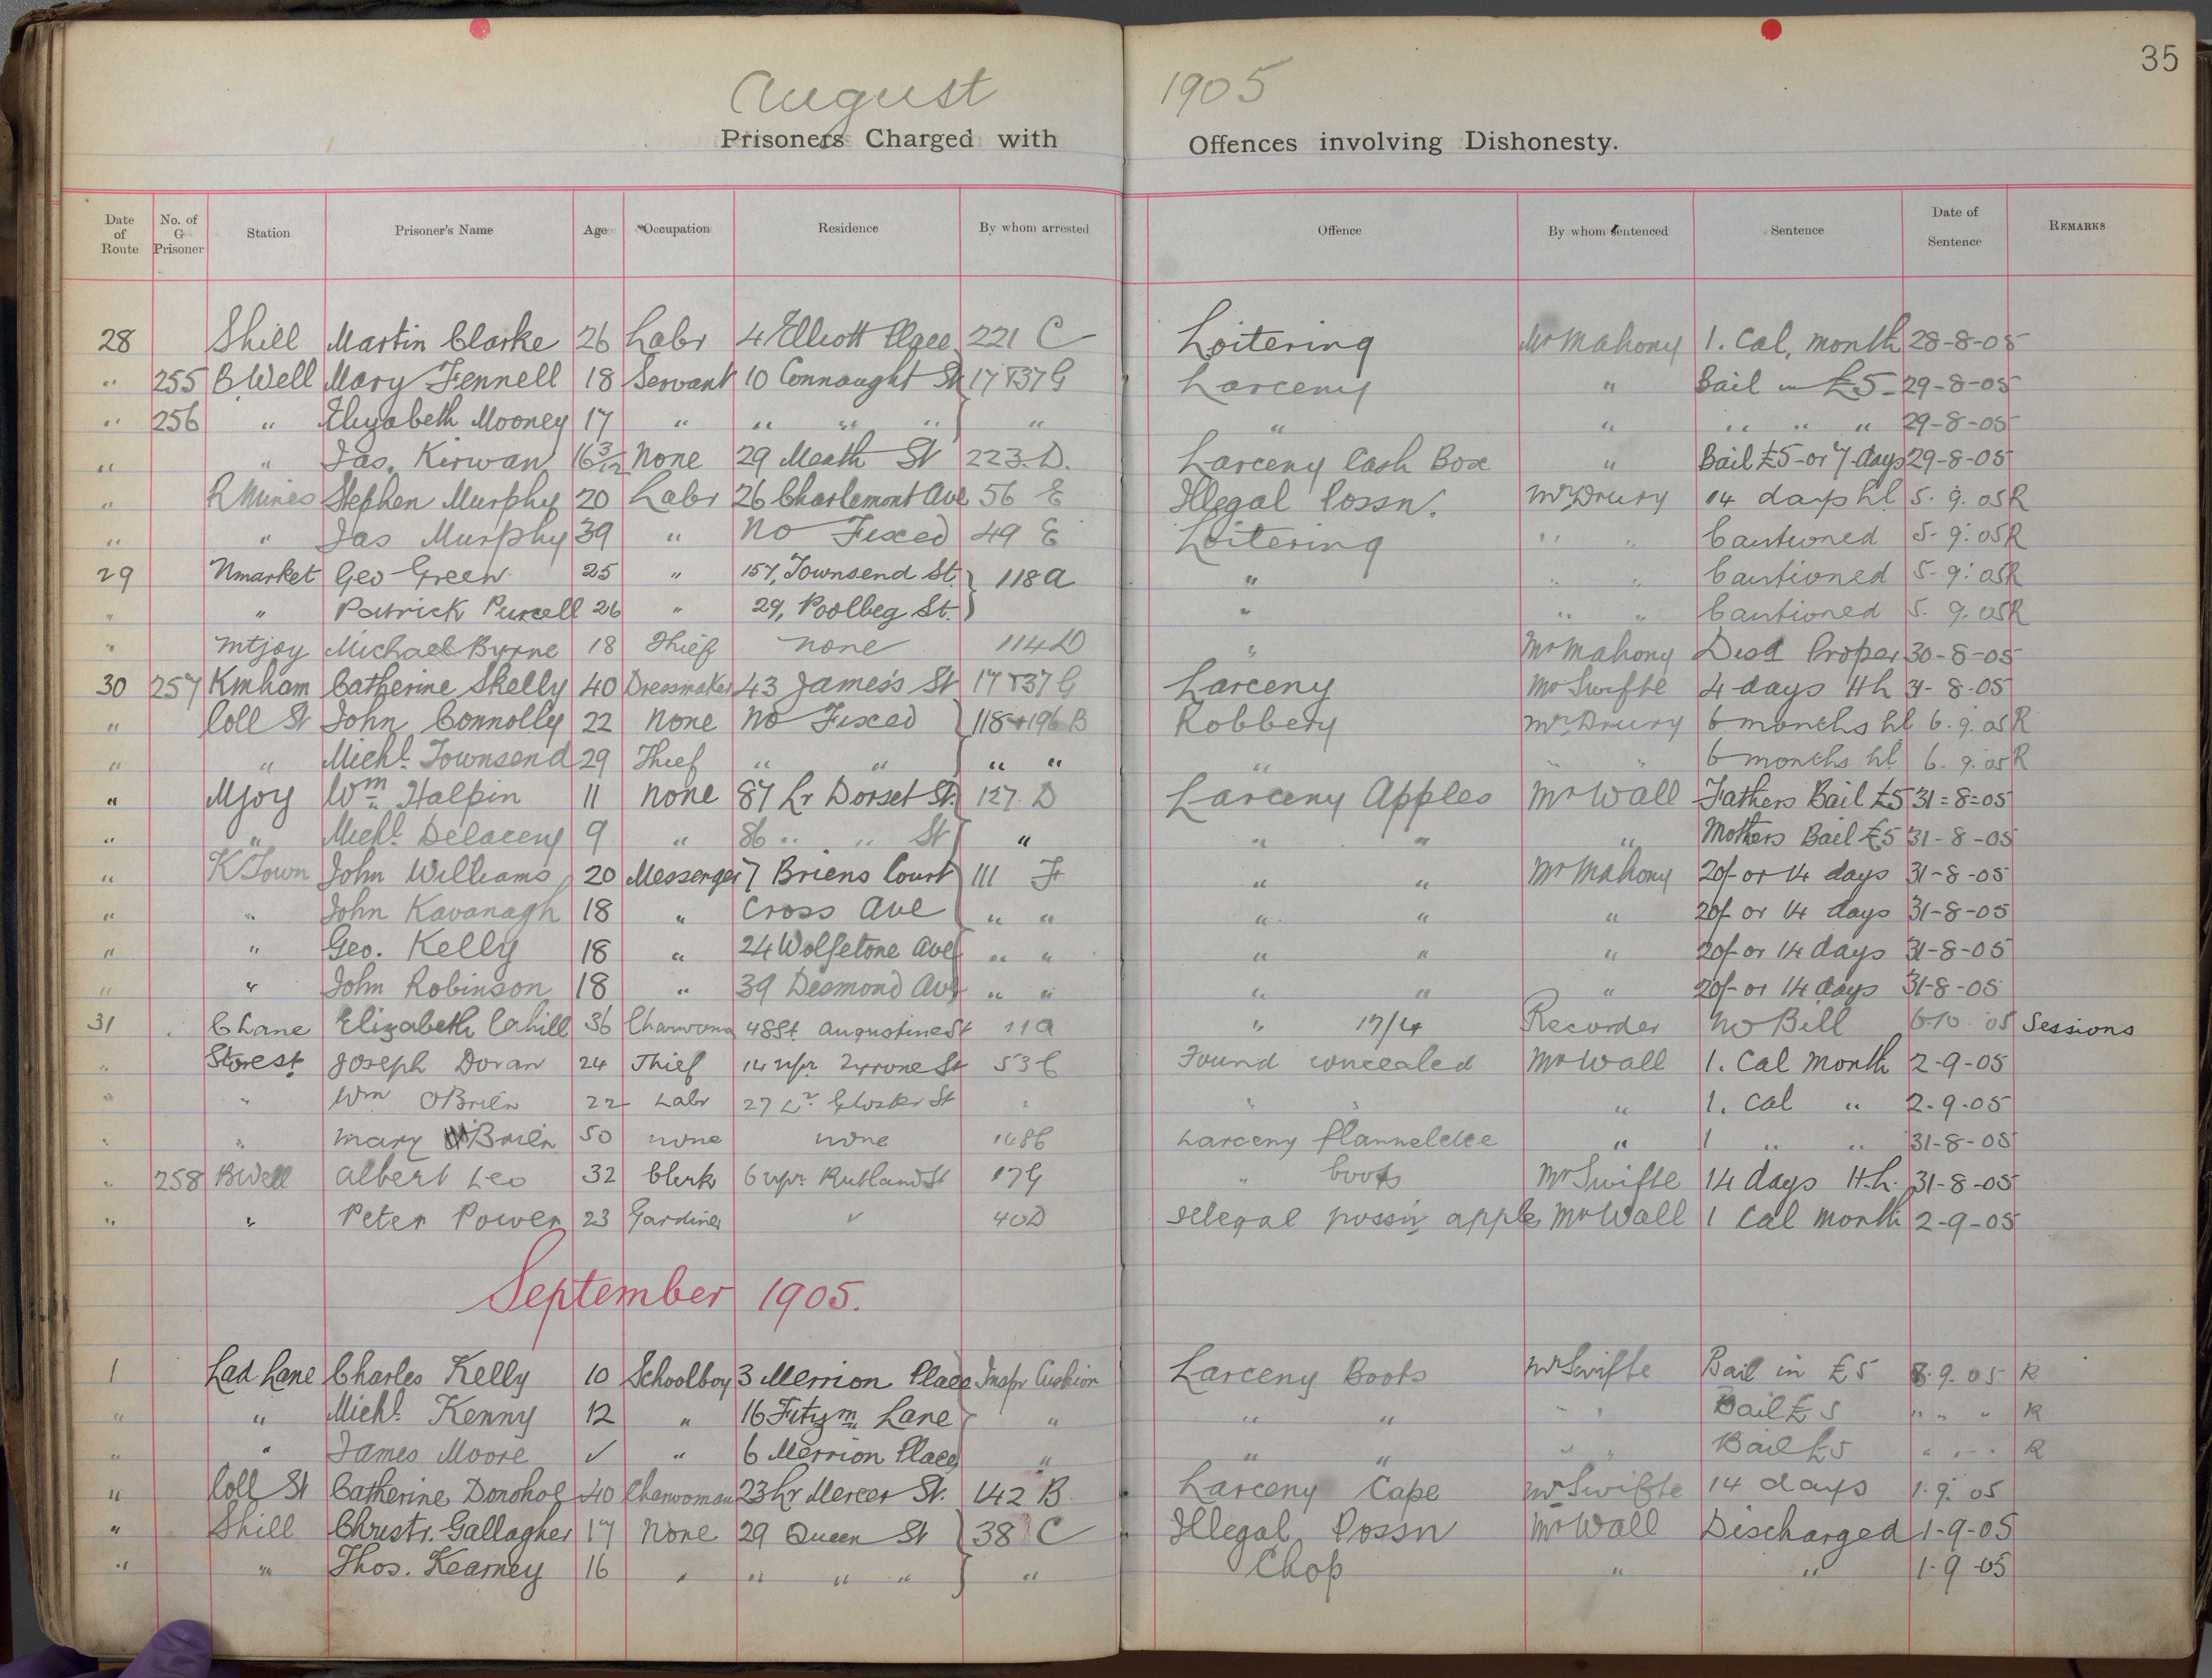 35
August 1905
Prisoners Charged with Offences involving Dishonesty.
Date of Route No. of G Prisoner Station Prisoner's Name Age Occupation Residence By whom arrested Offence By whom sentenced Sentence Date of Sentence REMARKS
28 Shill Martin Clarke 26 Labr 4 Elliott Place 221 C Loitering Mr Mahony 1. Cal. month 28-8-05
" 255 BWell Mary Fennell 18 Servant 10 Connaught St 17 & 37 G Larceny " Bail in £5- 29-8-05
" 256 " Elizabeth Mooney 17 " " " " } " " " " " " 29-8-05
" " Jas. Kirwan 16 3/12 None 29 Meath St 223.D. Larceny Cash Box " Bail £5-or 7-days 29-8-05
" RMines Stephen Murphy 20 Labr 26 Charlemont Ave 56 E Illegal Possn. Mr Drury 14 days hl 5. 9. 05 R
" " Jas Murphy 39 " No Fixed 49 E Loitering " " Cautioned 5. 9. 05 R
29 Nmarket Geo Green 25 " 157, Townsend St. } 118 A " " " Cautioned 5. 9. 05 R
" " Patrick Purcell 26 " 29, Poolbeg St. } " " " Cautioned 5. 9. 05 R
" Mtjoy Michael Byrne 18 Thief none 114D " Mr Mahony Disd Proper 30-8-05
30 257 Kmham Catherine Skelly 40 Dressmaker 43 James's St 17 & 37 G Larceny Mr Swifte 4 days Hh 31-8-05
" Coll St John Connolly 22 None No Fixed } 118 + 196 B Robbery Mr Drury 6 months hl 6. 9. 05 R
" " Michl. Townsend 29 Thief " " } " " " " " 6 months hl. 6. 9. 05 R
" Mjoy Wm Halpin 11 None 87 Lr Dorset St. } 127 D Larceny Apples Mr Wall Fathers Bail £5 31-8-05
" " Michl. Delaceny 9 " 86 " " St } " " " " Mothers Bail £5 31-8-05
" KTown John Williams 20 Messenger 7 Briens Court 111 F " " Mr Mahony 20/- or 14 days 31-8-05
" " John Kavanagh 18 " Cross Ave " " " " " 20/- or 14 days 31-8-05
" " Geo. Kelly 18 " 24 Wolfetone Ave " " " " " 20/- or 14 days 31-8-05
" " John Robinson 18 " 39 Desmond Ave " " " " " 20/- or 14 days 31-8-05
31 CLane Elizabeth Cahill 36 Charwoma 48 St. Augustine St 11A " 17/4 Recorder No Bill 6.10.05 Sessions
" Storest Joseph Doran 24 Thief 14 upr Tyrone St 53 C Found concealed Mr Wall 1. Cal Month 2-9-05
" " Wm OBrien 22 Labr 27 Lr Gloster St " " " " 1. Cal " 2.9.05
" " Mary OBrien 50 none none 148C Larceny flannelette " 1 " " 31-8-05
" 258 BWell Albert Leo 32 Clerk 6 upr Rutland St 17G " boots Mr Swifte 14 days H.h. 31-8-05
" " Peter Power 23 Gardiner ✓ 40D Illegal possn apples Mr Wall 1 Cal month 2-9-05
September 1905.
1 Lad Lane Charles Kelly 10 Schoolboy 3 Merrion Place Inspr Cushion Larceny Boots Mr Swifte Bail in £5 8. 9. 05 R
" " Michl. Kenny 12 " 16 Fitzm Lane " " " " " Bail £5 " " " R
" " James Moore ✓ " 6 Merrion Place " " " " " Bail £5 " " " R
" Coll St Catherine Donohoe 40 Charwoman 23 Lr Mercer St. 142 B Larceny Cape Mr Swifte 14 days 1. 9. 05
" Shill Christr. Gallagher 17 None 29 Queen St } 38 C Illegal Possn Mr Wall Discharged 1-9-05
" " Thos. Kearney 16 " " " " } " Chop " " 1-9-05